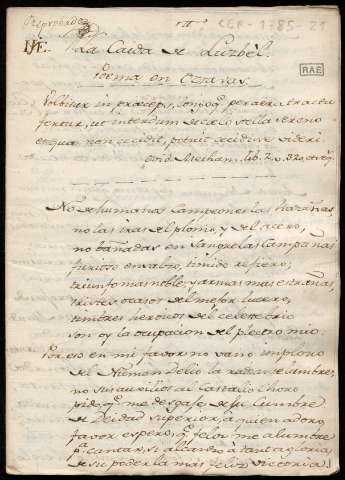 Reprobadas
1ª
CER-1785-21
La Caida de Luzbèl.
RAE
Poema en Octavas.
Volbitur in præceps, longoq; per aera tractu
fertur, ut interdum de cælo stella sereno
etsi non cecidit, potuit cecidisse videri.
ovid. Metham. lib. 2. v. 320. et seq.
No de humanos Campeones las hazañas,
no las iras del plomo, y del acero,
no bañadas en Sangre las Campañas
furioso en valor, refiero;
triunfo mas noble, y armas mas estrañas,
tristes ocasos del mejor lucero,
timbres heroicos del celeste
son oy la ocupacion del plectro mio.
Por eso en mi favor no vano imploro
del Numen Delio la radiante lumbre,
no sus auxilios al Castalio Choro
pido, q.e me desgaje de su Cumbre
à Deidad Superior, à quien adoro,
favor espero, q.e feliz me alumbre
p.a cantar, si alcanzo à tanta gloria,
de su poder la mas feliz victoria.